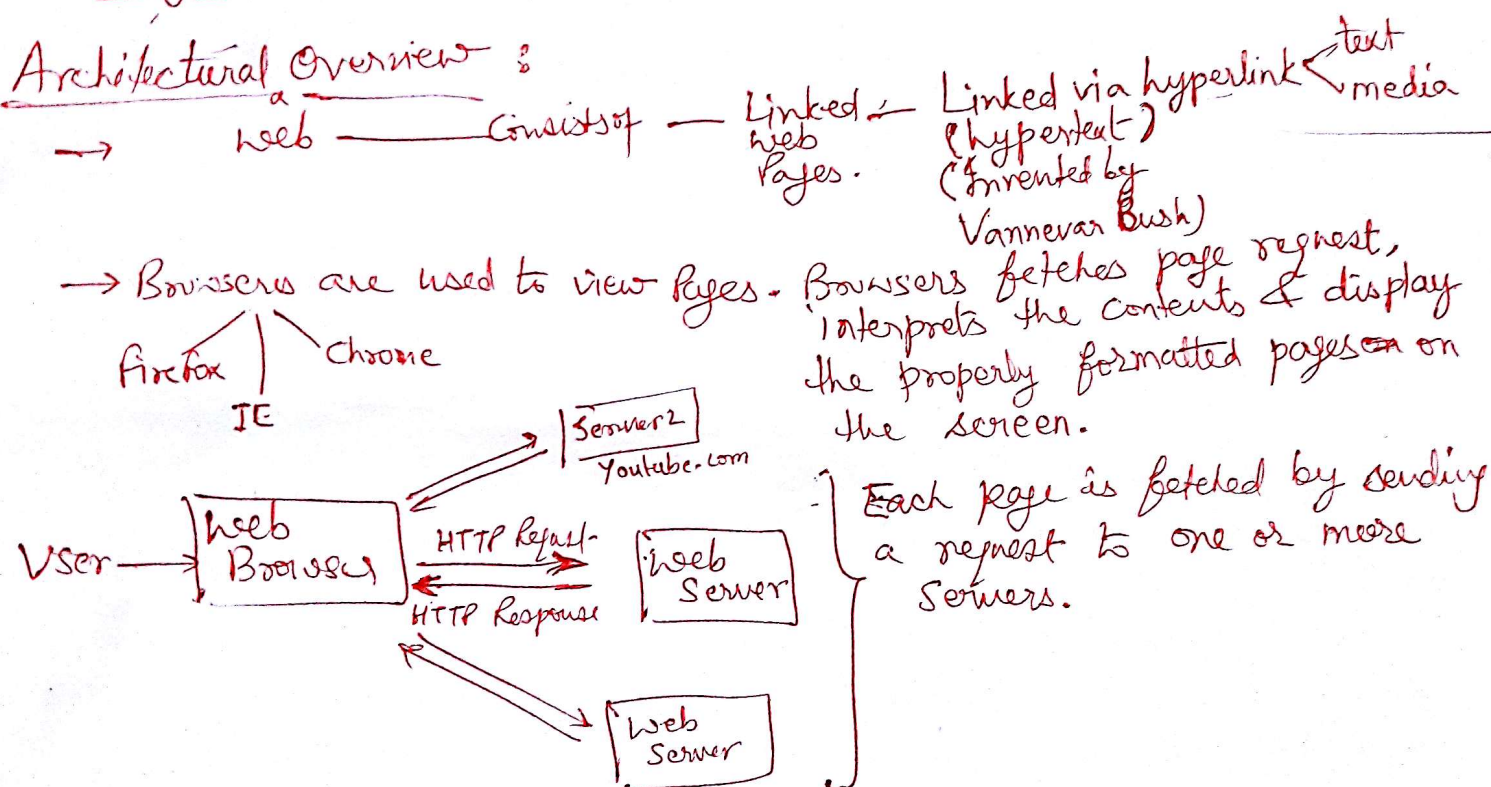 Architectural Overview :
→ Web — Consists of — Linked — Linked via hyperlink < text
media
Web (hypertext)
Pages. (Invented by
Vannevar Bush)
→ Browsers are used to view Pages. Browsers fetches page request,
interprets the contents & display
the properly formatted pages on
the screen.
Firefox IE Chrome
Server2
Youtube.com
User → Web
Browser
HTTP Request
HTTP Response
Web
Server
Web
Server
Each page is fetched by sending
a request to one or more
Servers.